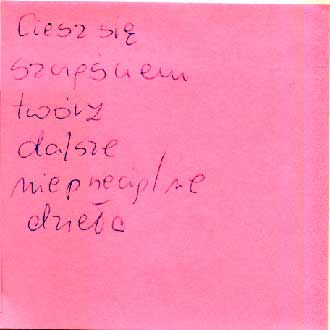 Ciesz się
szczęściem
twórz
dalsze
nieprzeciętne
dzieła